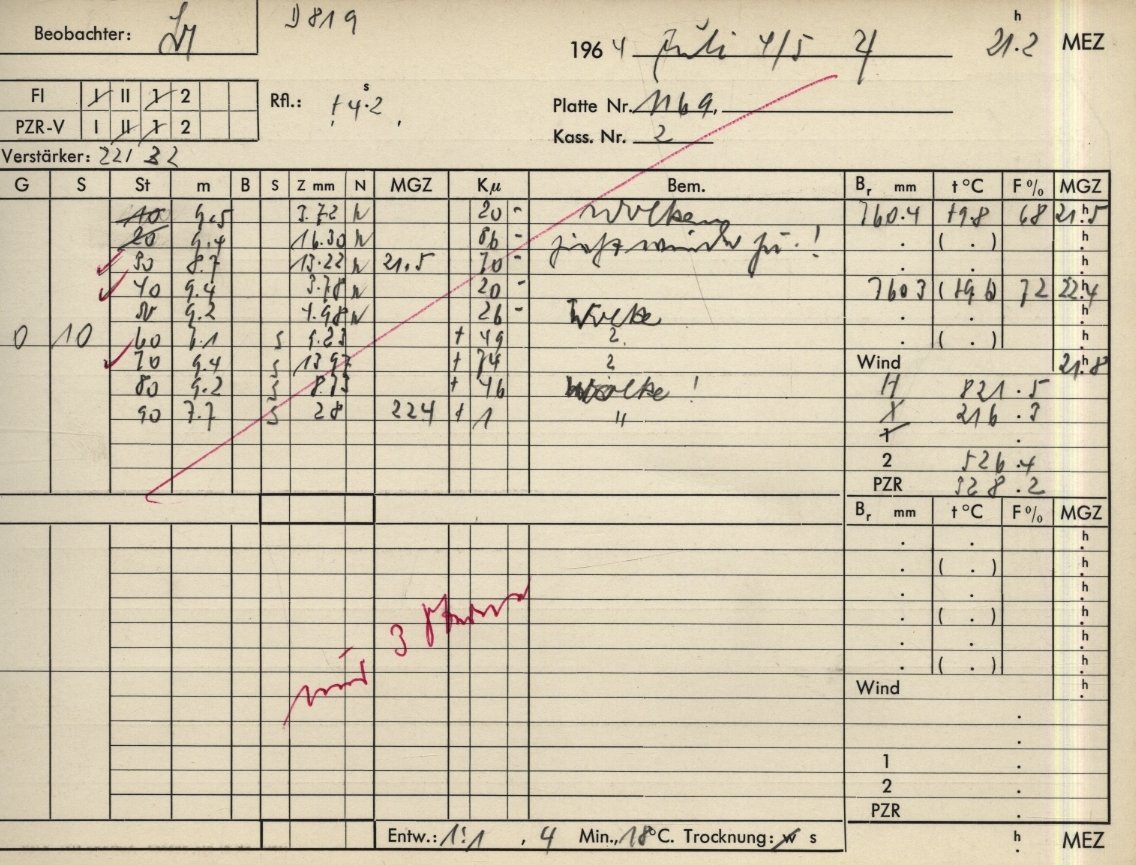 Beobachter:
D 819
1964 Juli 4/5 21.2 h MEZ
FI I II 1 2
PZR-V I II 1 2
Rfl.: +4.2 s
Platte Nr. 1169.
Kass. Nr. 2
Verstärker: 221 22
G S St m B S Z mm N MGZ Kμ Bem. Br mm t °C F % MGZ
10 9.5 3.72 N 20 - Wolken 760.4 +9.8 68 21.5 h
20 9.4 16.30 N 86 - zieht wieder zu! . ( . ) h
30 8.7 13.22 N 21.5 70 - . . h
40 9.4 3.78 N 20 - 760.3 (+9.6) 72 22.4 h
50 9.2 4.98 N 26 - Wolke . . h
0 10 60 S 9.23 + 49 2 . ( . ) h
70 9.4 S 13.97 + 74 2 Wind 21.8 h
80 9.2 S 8.73 + 46 Wolke ! H 821.5
90 7.7 S 28 22.4 + 1 " 216.3
1 .
2 526.4
PZR 328.2
Br mm t °C F % MGZ
. . h
. ( . ) h
. . h
. ( . ) h
. . h
. ( . ) h
nur 3 Sterne
Wind h
.
.
1 .
2 .
PZR .
Entw.: 1:1 , 4 Min., 18 °C. Trocknung: w s h MEZ